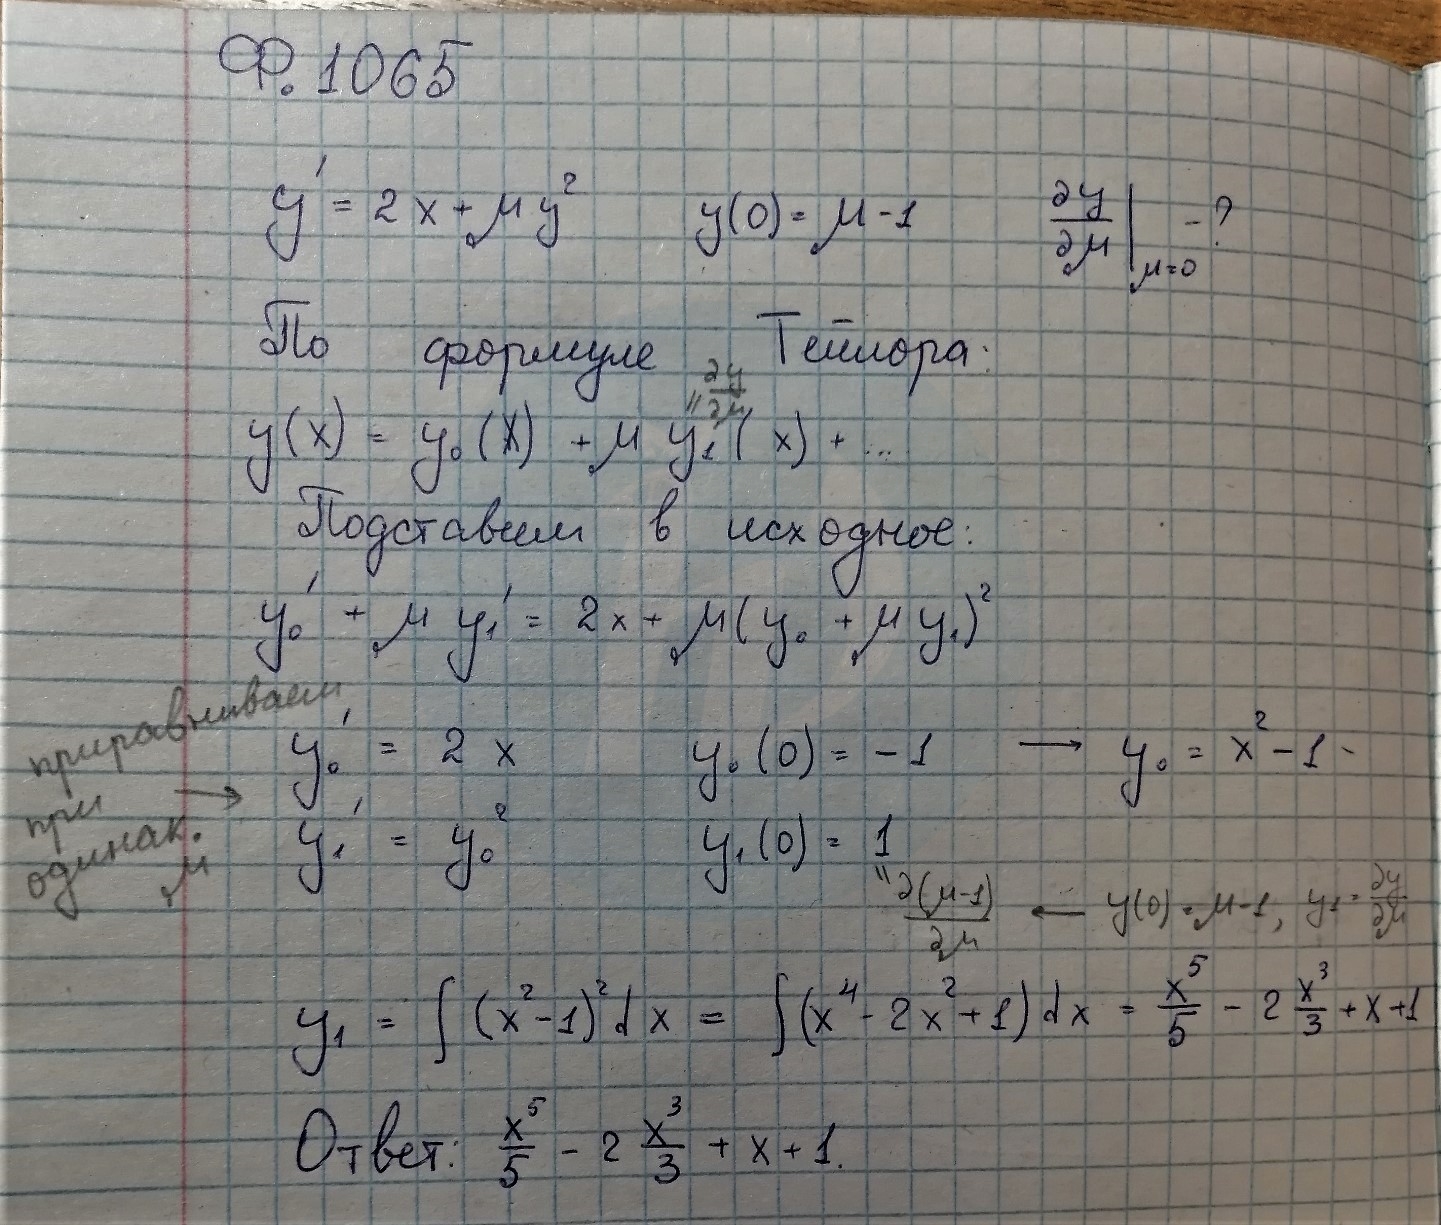 Ф. 1065
y' = 2x + μy² y(0) = μ - 1 ∂y/∂μ |μ=0 - ?
По формуле Тейлора:
y(x) = y₀(x) + μ y₁(x) + ...
" ∂y/∂μ
Подставим в исходное:
y₀' + μ y₁' = 2x + μ(y₀ + μ y₁)²
приравниваем
при
одинак.
μ
→ y₀' = 2x y₀(0) = -1 → y₀ = x² - 1
y₁' = y₀² y₁(0) = 1
" ∂(μ-1)/∂μ ← y(0) = μ-1, y₁ = ∂y/∂μ
y₁ = ∫(x² - 1)² dx = ∫(x⁴ - 2x² + 1) dx = x⁵/5 - 2 x³/3 + x + 1
Ответ: x⁵/5 - 2 x³/3 + x + 1.